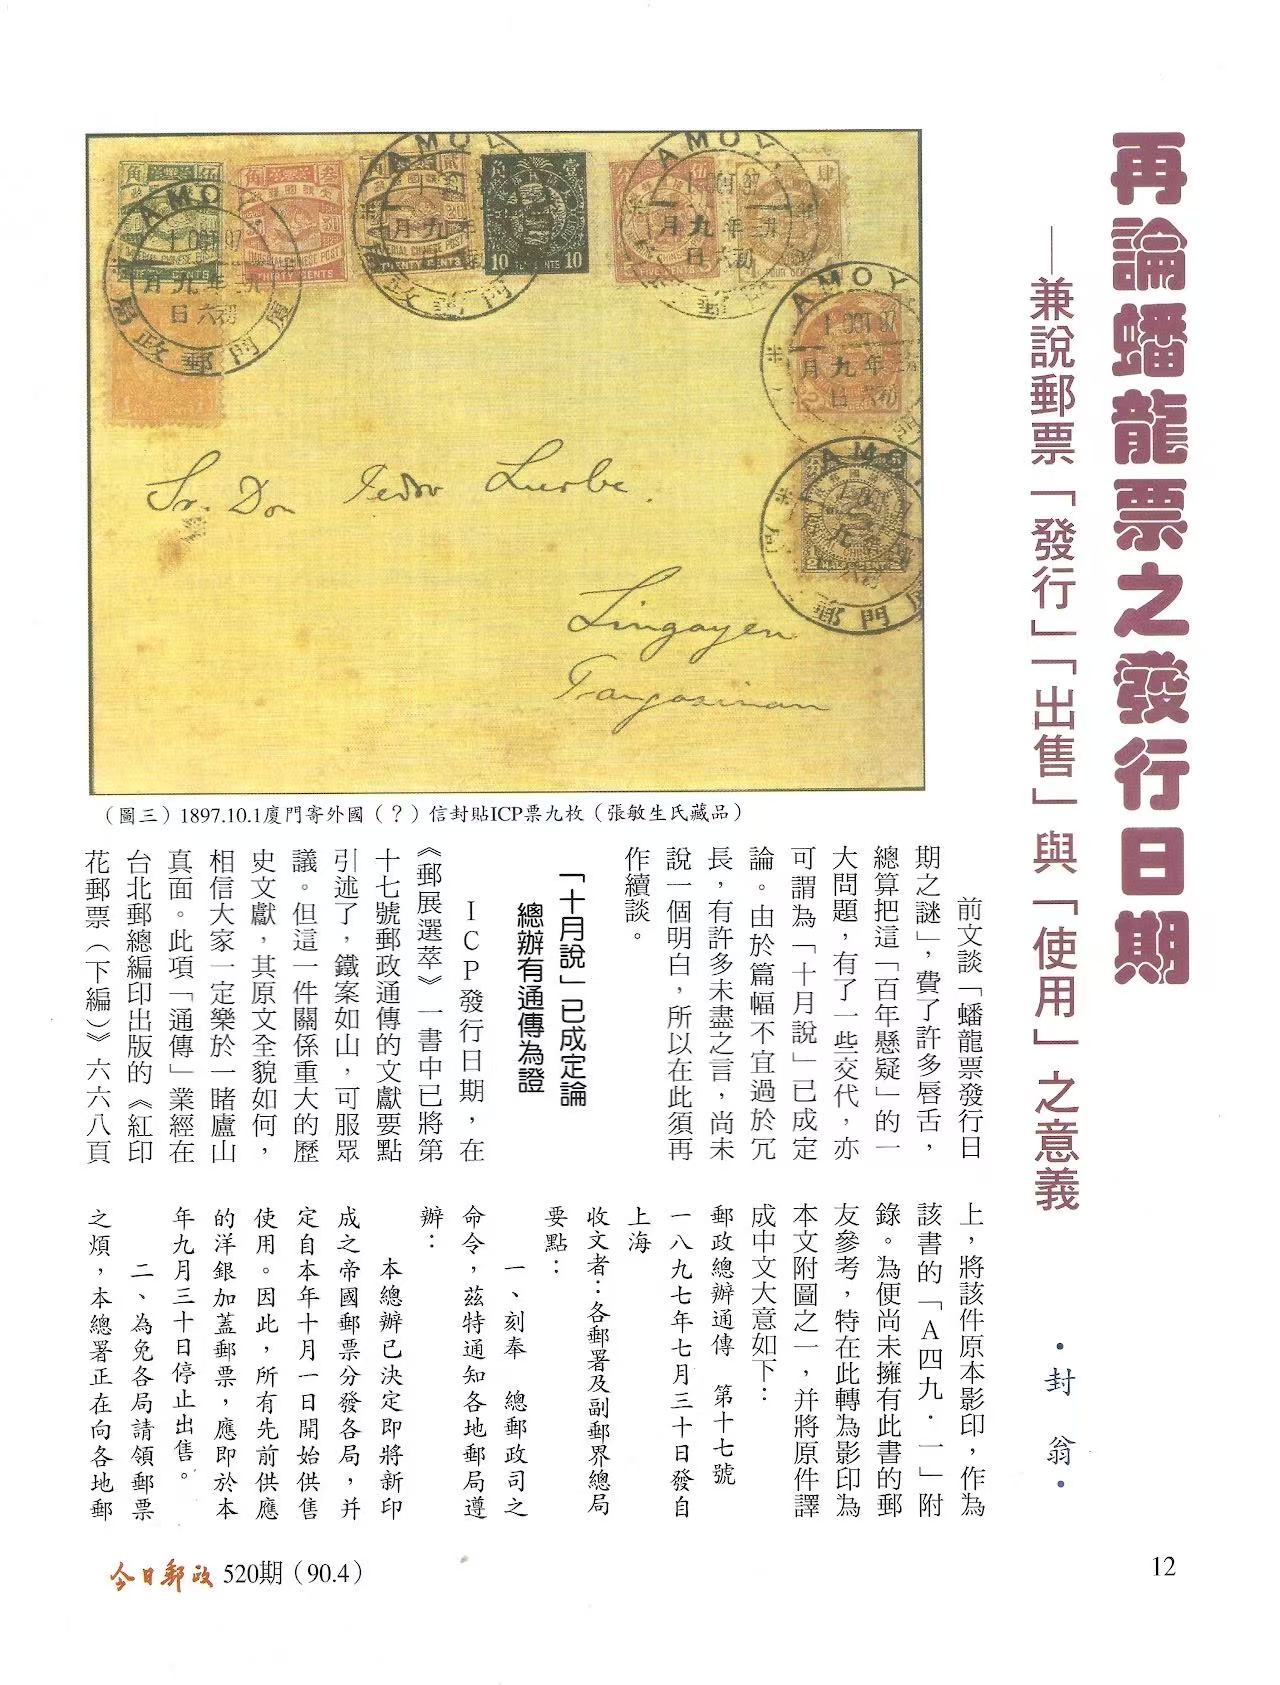 再論蟠龍票之發行日期
——兼說郵票「發行」「出售」與「使用」之意義
·封 翁·
AMOY
1 OCT 97
九月
初六日
廈門郵政局
IMPERIAL CHINESE POST
THIRTY CENTS
TWENTY CENTS
10 TEN CENTS 10
FIVE CENTS
Sr. Don Pedro Luerbe.
Lingayen
Pangasinan
（圖三）1897.10.1廈門寄外國（？）信封貼ICP票九枚（張敏生氏藏品）
前文談「蟠龍票發行日
期之謎」，費了許多唇舌，
總算把這「百年懸疑」的一
大問題，有了一些交代，亦
可謂為「十月說」已成定
論。由於篇幅不宜過於冗
長，有許多未盡之言，尚未
說一個明白，所以在此須再
作續談。
「十月說」已成定論
總辦有通傳為證
ICP發行日期，在
《郵展選萃》一書中已將第
十七號郵政通傳的文獻要點
引述了，鐵案如山，可服眾
議。但這一件關係重大的歷
史文獻，其原文全貌如何，
相信大家一定樂於一睹廬山
真面。此項「通傳」業經在
台北郵總編印出版的《紅印
花郵票（下編）》六六八頁
上，將該件原本影印，作為
該書的「A四九·一」附
錄。為便尚未擁有此書的郵
友參考，特在此轉為影印為
本文附圖之一，并將原件譯
成中文大意如下：
郵政總辦通傳 第十七號
一八九七年七月三十日發自
上海
收文者：各郵署及副郵界總局
要點：
一、刻奉 總郵政司之
命令，茲特通知各地郵局遵
辦：
本總辦已決定即將新印
成之帝國郵票分發各局，并
定自本年十月一日開始供售
使用。因此，所有先前供應
的洋銀加蓋郵票，應即於本
年九月三十日停止出售。
二、為免各局請領郵票
之煩，本總署正在向各地郵
今日郵政 520期（90.4）
12